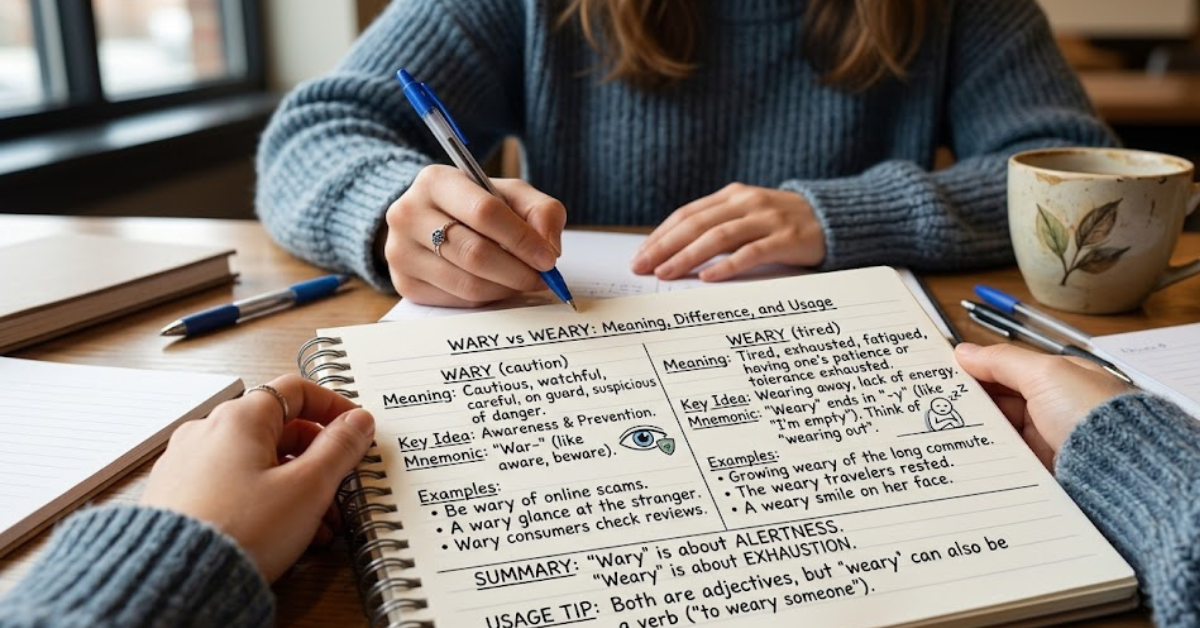 WARY vs WEARY: Meaning, Difference, and Usage
WARY (caution)
Meaning: Cautious, watchful,
careful, on guard, suspicious
of danger.
Key Idea: Awareness & Prevention.
Mnemonic: "War-" (like
aware, beware).
Examples:
• Be wary of online scams.
• A wary glance at the stranger.
• Wary consumers check reviews.
WEARY (tired)
Meaning: Tired, exhausted, fatigued,
having one's patience or
tolerance exhausted.
Key Idea: Wearing away, lack of energy.
Mnemonic: "Weary" ends in "-y" (like
"I'm empty"). Think of
"wearing out".
zzz
Examples:
• Growing weary of the long commute.
• The weary travelers rested.
• A weary smile on her face.
SUMMARY: "Wary" is about ALERTNESS.
"Weary" is about EXHAUSTION.
USAGE TIP: Both are adjectives, but "weary" can also be
a verb ("to weary someone").